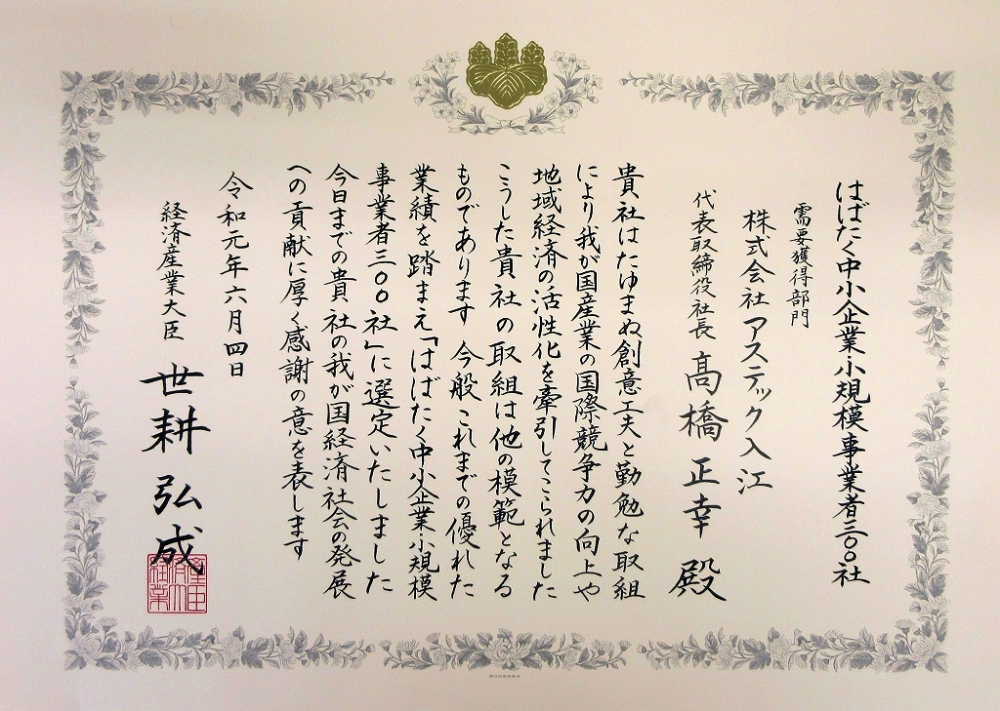 はばたく中小企業小規模事業者三〇〇社
需要獲得部門
株式会社アステック入江
代表取締役社長 髙橋正幸 殿
貴社はたゆまぬ創意工夫と勤勉な取組
により我が国産業の国際競争力の向上や
地域経済の活性化を牽引してこられました
こうした貴社の取組は他の模範となる
ものであります 今般これまでの優れた
業績を踏まえ「はばたく中小企業小規模
事業者三〇〇社」に選定いたしました
今日までの貴社の我が国経済社会の発展
への貢献に厚く感謝の意を表します
令和元年六月四日
経済産業大臣 世耕弘成